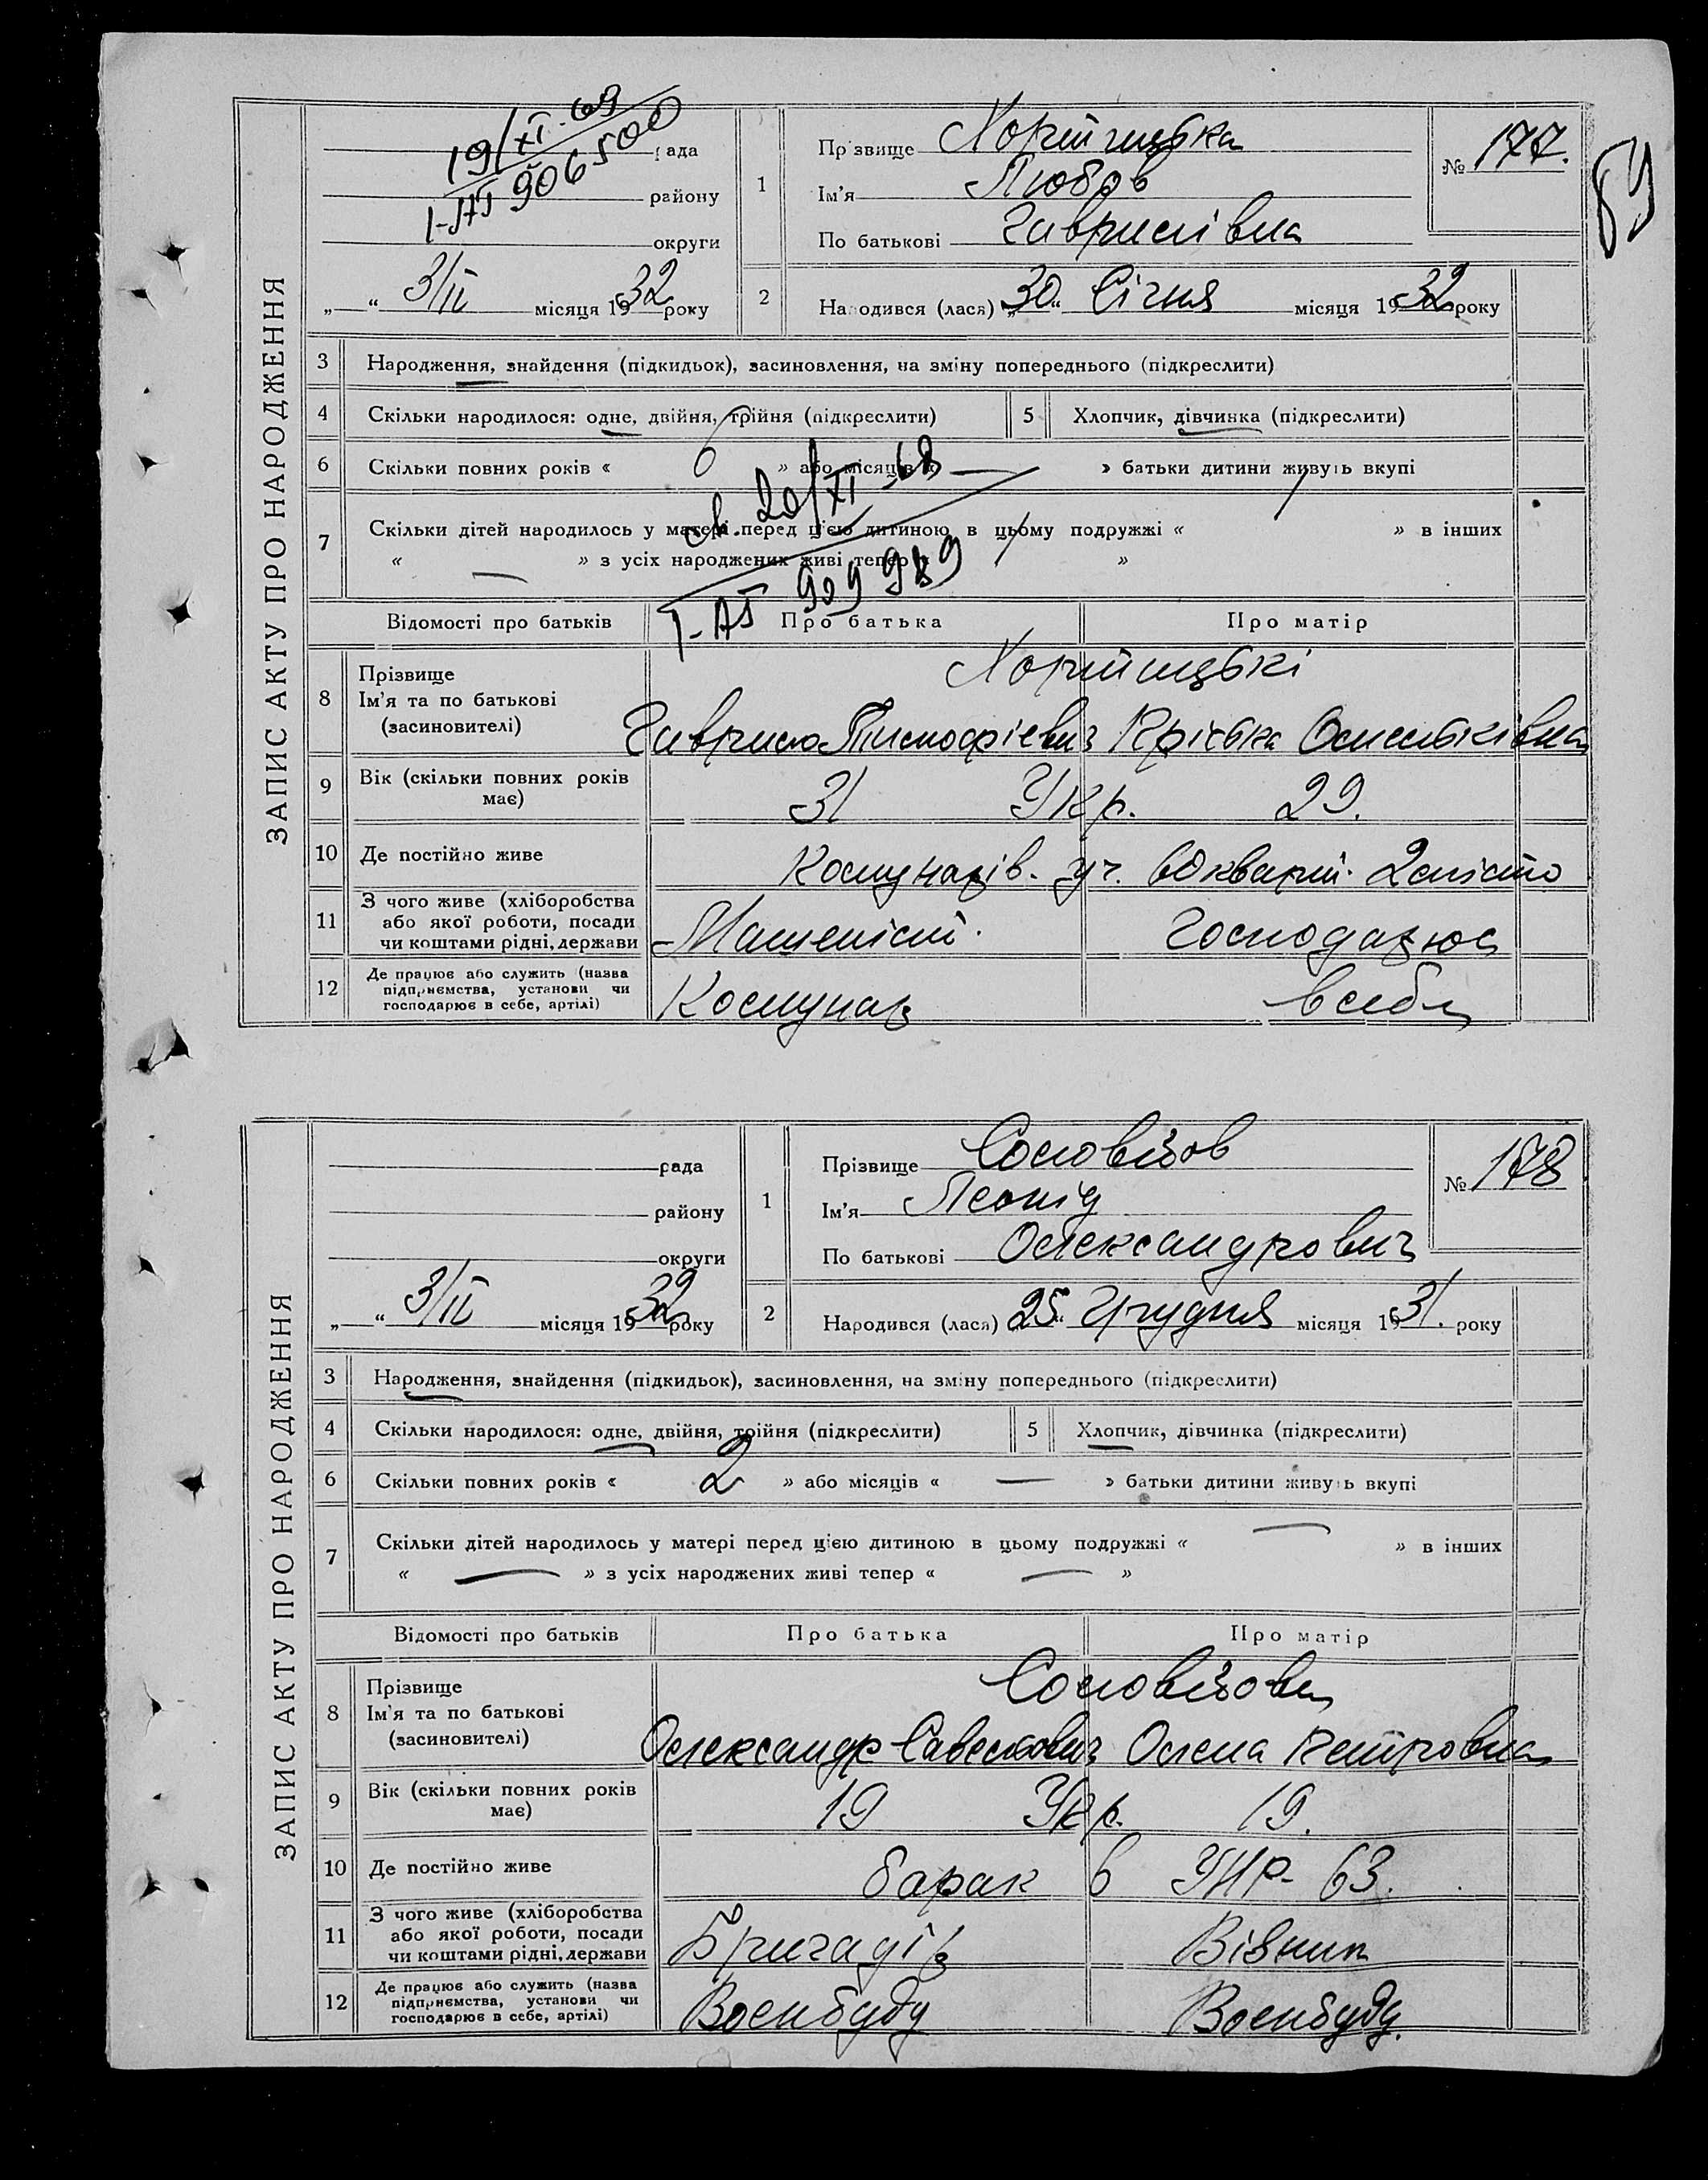 ЗАПИС АКТУ ПРО НАРОДЖЕННЯ
19/XI-69
І-АЯ 906500
рада
району
округи
„ “ 3/II місяця 1932 року
1
Прізвище Хортицька
Ім'я Любов
По батькові Гаврилівна
№ 177.
89
2
Народився (лася) „30“ Січня місяця 1932 року
3 Народження, знайдення (підкидьок), засиновлення, на зміну попереднього (підкреслити)
4 Скільки народилося: одне, двійня, трійня (підкреслити)
5 Хлопчик, дівчинка (підкреслити)
6 Скільки повних років « 6 » або місяців « — » батьки дитини живуть вкупі
7 Скільки дітей народилось у матері перед цією дитиною в цьому подружжі « / » в інших
« — » з усіх народжених живі тепер « / »
20/XI-68
909989
Відомості про батьків Про батька Про матір
8 Прізвище Ім'я та по батькові (засновителі)
Хортицькі
Гаврило
9 Вік (скільки повних років має) 31 Укр. 29.
10 Де постійно живе Комунарів.
11 З чого живе (хліборобства або якої роботи, посади чи коштами рідні, держави
Машеніст. Господарює
12 Де працює або служить (назва підприємства, установи чи господарює в себе, артілі)
Комунар в себе
ЗАПИС АКТУ ПРО НАРОДЖЕННЯ
рада
району
округи
„ “ 3/II місяця 1932 року
1
Прізвище
Ім'я Леонід
По батькові Олександрович
№ 178
2
Народився (лася) „25“ Грудня місяця 1931. року
3 Народження, знайдення (підкидьок), засиновлення, на зміну попереднього (підкреслити)
4 Скільки народилося: одне, двійня, трійня (підкреслити)
5 Хлопчик, дівчинка (підкреслити)
6 Скільки повних років « 2 » або місяців « — » батьки дитини живуть вкупі
7 Скільки дітей народилось у матері перед цією дитиною в цьому подружжі « — » в інших
« — » з усіх народжених живі тепер « — »
Відомості про батьків Про батька Про матір
8 Прізвище Ім'я та по батькові (засиновителі)
Олександр Савелович Олена Петровна
9 Вік (скільки повних років має) 19 Укр. 19.
10 Де постійно живе барак в УНР-63.
11 З чого живе (хліборобства або якої роботи, посади чи коштами рідні, держави
Бригадір
12 Де працює або служить (назва підприємства, установи чи господарює в себе, артілі)
Воєнбуду Воєнбуду.